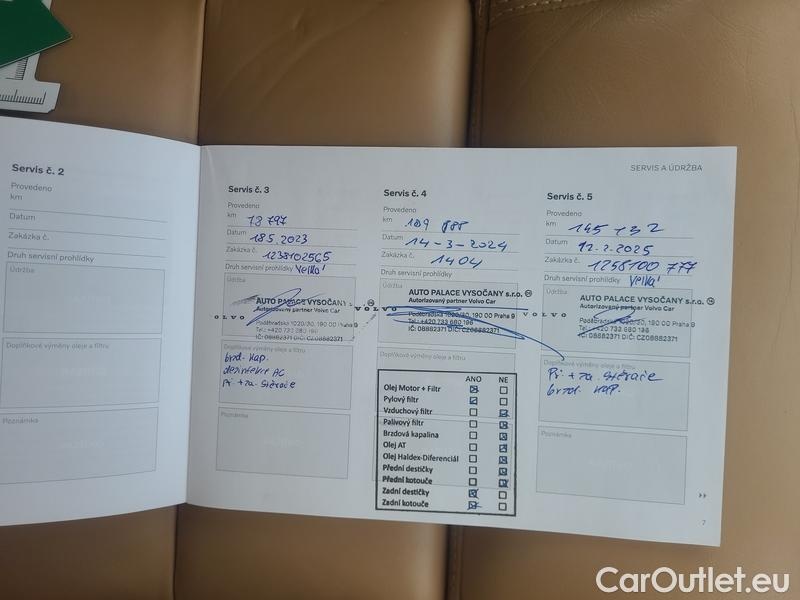 SERVIS A ÚDRŽBA
Servis č. 2
Provedeno
km
Datum
Zakázka č.
Druh servisní prohlídky
Údržba
Doplňkové výměny oleje a filtru
Poznámka
Servis č. 3
Provedeno
km 78 797
Datum 18.5.2023
Zakázka č. 1238102565
Druh servisní prohlídky Velká
Údržba
AUTO PALACE VYSOČANY
Autorizovaný partner Volvo Car
Poděbradská 1020/30, 190 00 Praha 9
Tel.: +420 733 680 196
IČ: 08882371 DIČ: CZ08882371
Doplňkové výměny oleje a filtru
brzd. kap.
dezinfekce AC
Př. + za. stěrače
Poznámka
Servis č. 4
Provedeno
km 109 888
Datum 14-3-2024
Zakázka č. 1404
Druh servisní prohlídky
Údržba
VOLVO
AUTO PALACE VYSOČANY s.r.o.
Autorizovaný partner Volvo Car
Poděbradská 1020/30, 190 00 Praha 9
Tel.: +420 733 680 196
IČ: 08882371 DIČ: CZ08882371
Doplňkové výměny oleje a filtru
ANO NE
Olej Motor + Filtr
Pylový filtr
Vzduchový filtr
Palivový filtr
Brzdová kapalina
Olej AT
Olej Haldex-Diferenciál
Přední destičky
Přední kotouče
Zadní destičky
Zadní kotouče
Servis č. 5
Provedeno
km 145 132
Datum 12.2.2025
Zakázka č. 1258100 777
Druh servisní prohlídky Velká
Údržba
VOLVO
AUTO PALACE VYSOČANY s.r.o.
Autorizovaný partner Volvo Car
Poděbradská 1020/30, 190 00 Praha 9
Tel.: +420 733 680 196
IČ: 08882371 DIČ: CZ08882371
Doplňkové výměny oleje a filtru
Př. + za. stěrače
brzd. kap.
Poznámka
7
CarOutlet.eu